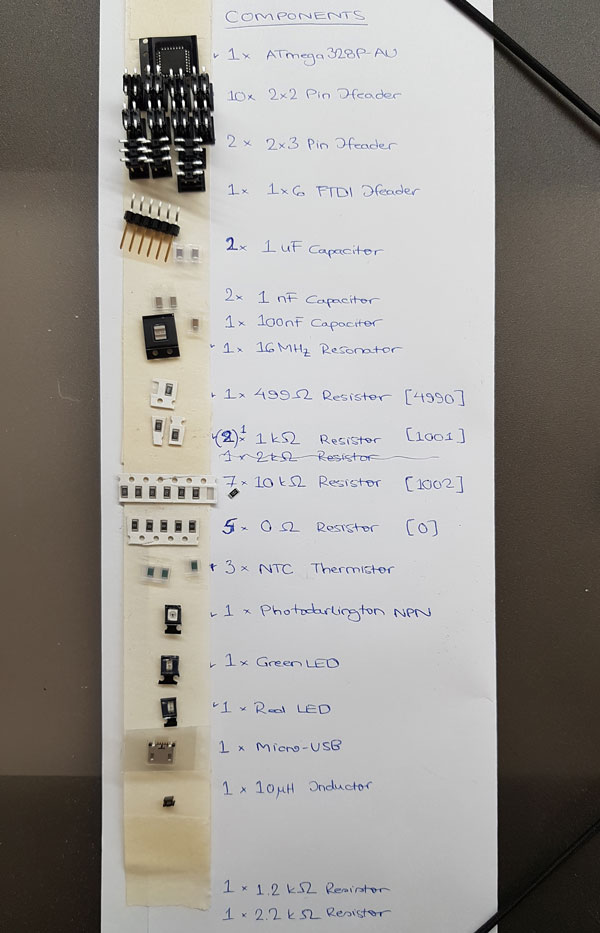 COMPONENTS
1 x ATmega328P-AU
10x 2x2 Pin Header
2 x 2x3 Pin Header
1x 1x6 FTDI Header
2x 1 uF Capacitor
2x 1 nF Capacitor
1x 100nF Capacitor
1x 16MHz Resonator
1 x 499Ω Resistor [4990]
(2) 1 x 1kΩ Resistor [1001]
1 x 2kΩ Resistor
7 x 10 kΩ Resistor [1002]
5 x 0 Ω Resistor [0]
3 x NTC Thermistor
1 x Photodarlington NPN
1 x Green LED
1 x Red LED
1 x Micro-USB
1 x 10μH Inductor
1 x 1.2 kΩ Resistor
1 x 2.2 kΩ Resistor